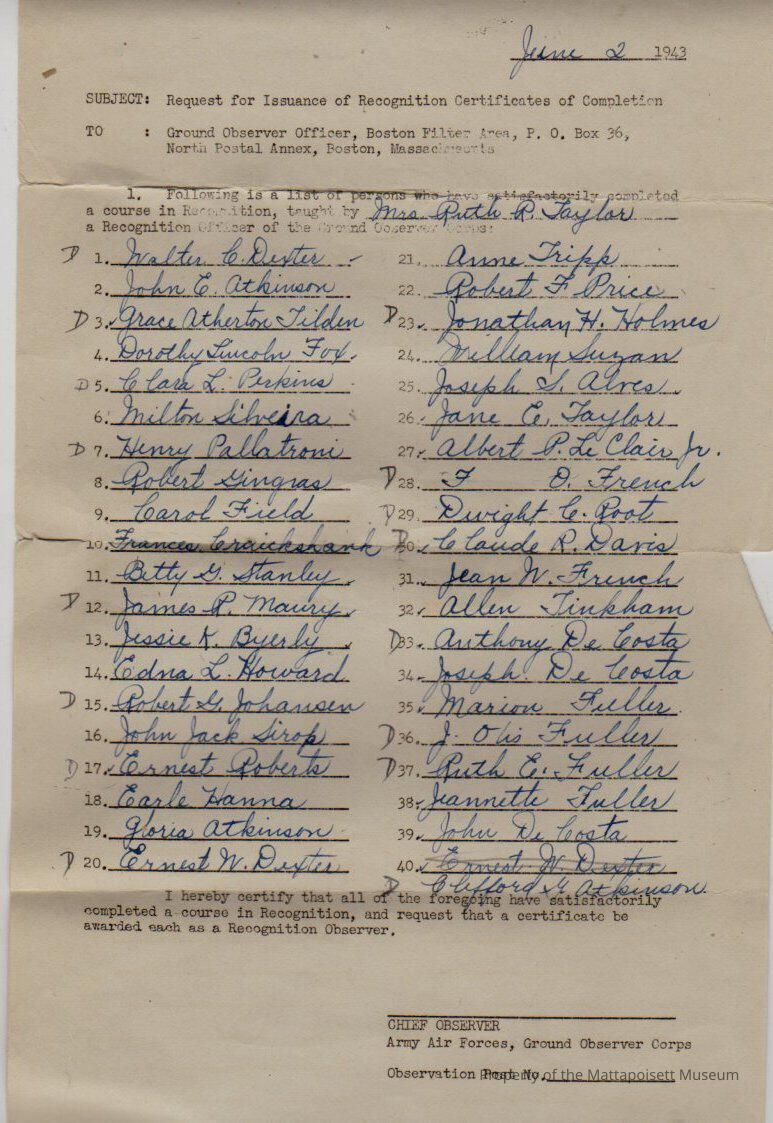 June 2 1943
SUBJECT: Request for Issuance of Recognition Certificates of Completion
TO : Ground Observer Officer, Boston Filter Area, P. O. Box 36,
North Postal Annex, Boston, Massachusetts
1. Following is a list of persons who have satisfactorily completed
a course in Recognition, taught by Mrs Ruth R. Taylor
a Recognition Officer of the Ground Observer Corps:
D 1. Walter C. Dexter
2. John E. Atkinson
D 3. Grace Atherton Tilden
4. Dorothy Lincoln Fox.
D 5. Clara L. Perkins
6. Milton Silveira
D 7. Henry Pallatroni
8. Robert Gingras
9. Carol Field
10. Frances Cruickshank
11. Betty G. Stanley
D 12. James P. Maury
13. Jessie K. Byerly
14. Edna L. Howard
D 15. Robert G. Johansen
16. John Jack Sirop
D 17. Ernest Roberts
18. Earle Hanna
19. Gloria Atkinson
D 20. Ernest W. Dexter
21. Anne Tripp
22. Robert F. Price
D 23. Jonathan H. Holmes
24. William Suzan
25. Joseph S. Alves
26. Jane E. Taylor
27. Albert P. Le Clair Jr.
D 28. F O. French
D 29. Dwight C. Root
D 30. Claude R. Davis
31. Jean W. French
32. Allen Tinkham
D 33. Anthony De Costa
34. Joseph De Costa
35. Marion Fuller
D 36. J. Otis Fuller
D 37. Ruth E. Fuller
38. Jeannette Fuller
39. John De Costa
40. Ernest W. Dexter
D Clifford G. Atkinson.
I hereby certify that all of the foregoing have satisfactorily
completed a course in Recognition, and request that a certificate be
awarded each as a Recognition Observer.
CHIEF OBSERVER
Army Air Forces, Ground Observer Corps
Observation Post No.
Property of the Mattapoisett Museum